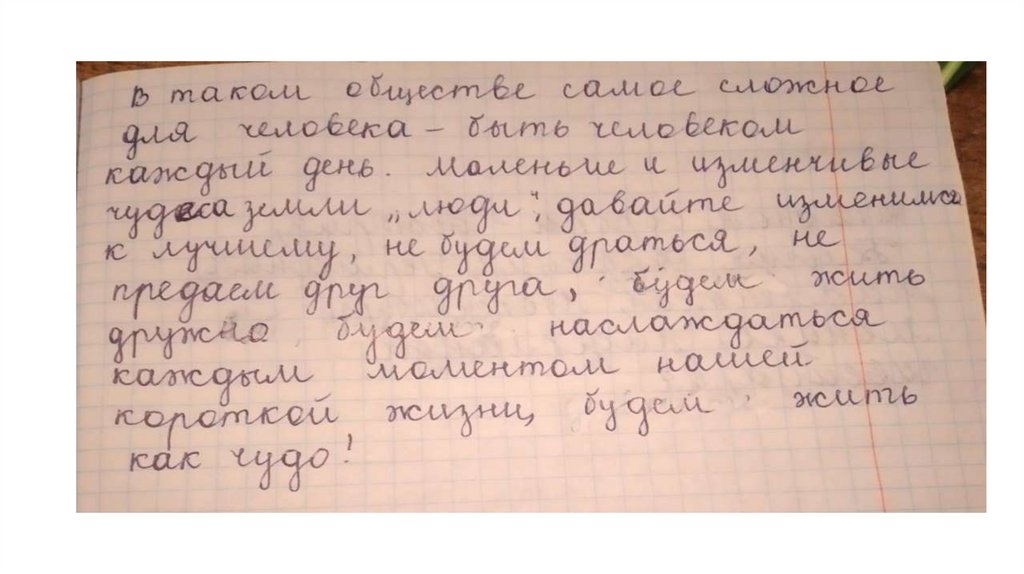 в таком обществе самое сложное
для человека - быть человеком
каждый день. маленькие и изменчивые
чудеса земли „люди", давайте изменимся
к лучшему, не будем драться, не
предаем друг друга, будем жить
дружно будем наслаждаться
каждым моментом нашей
короткой жизни, будем жить
как чудо!